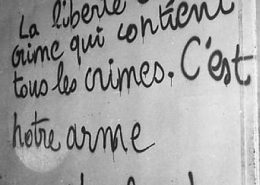 La liberté
crime qui contient
tous les crimes. C'est
notre arme